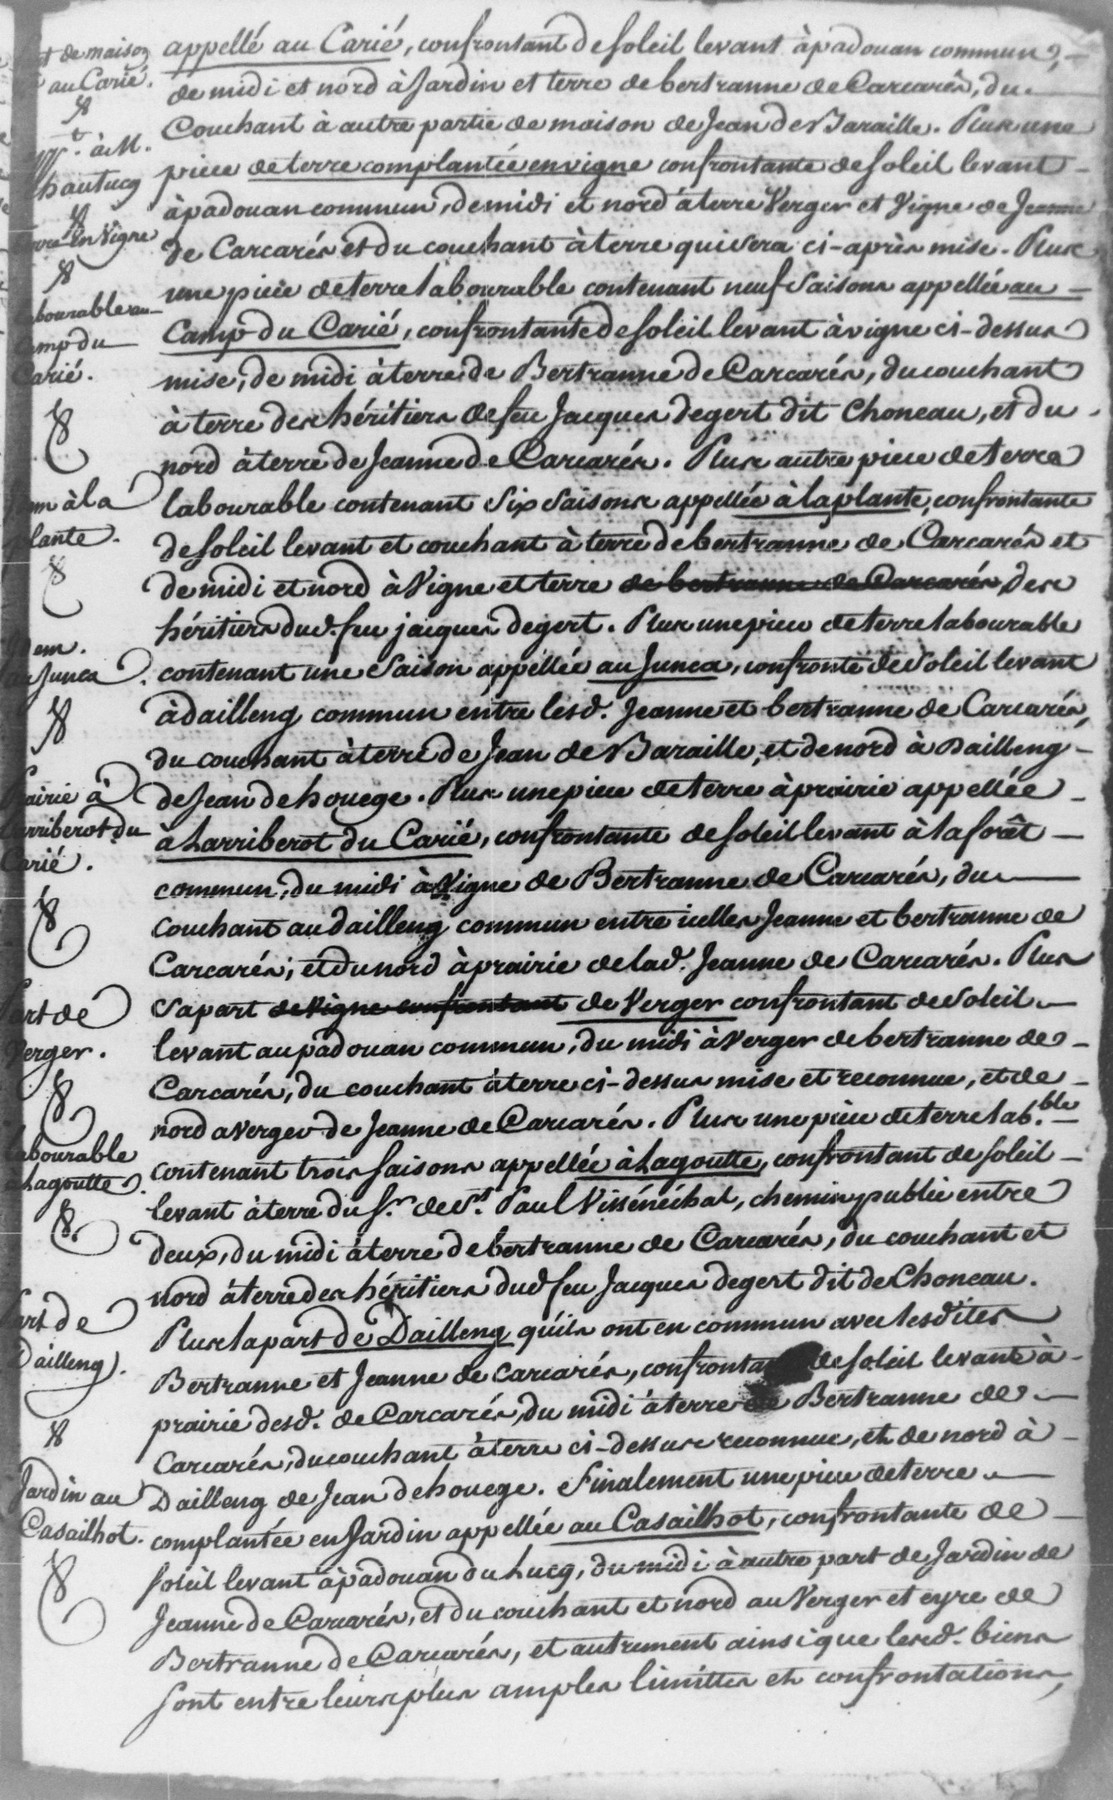 t de maison
au Carié.
à M.
hautucq
terre en Vigne
abourable au
Camp du
Carié.
à la
plante.
Idem.
au Junca
Prairie à
Larriberot du
Carié.
Part de
Verger.
Labourable
à Lagoutte.
Part de
Dailleng.
Jardin au
Casailhot.
appellé au Carié, confrontant de soleil levant à padouan commun,
de midi et nord à Jardin et terre de bertranne de Carcarés, du
Couchant à autre partie de maison de Jean de Baraille. Plus une
piece de terre complantée en vigne confrontante de soleil levant
à padouan commun, de midi et nord à terre Verger et Vigne de Jeanne
de Carcarés et du couchant à terre qui sera ci-après mise. Plus
une piece de terre labourable contenant neuf saisons appellée au
Camp du Carié, confrontante de soleil levant à vigne ci-dessus
mise, de midi à terre de Bertranne de Carcarés, du couchant
à terre des héritiers de feu Jacques degert dit Choneau, et du
nord à terre de Jeanne de Carcarés. Plus autre piece de terre
labourable contenant six saisons appellée à la plante, confrontante
de soleil levant et couchant à terre de bertranne de Carcarés et
de midi et nord à Vigne et terre de bertranne de Carcarés, des
héritiers dud. feu jacques degert. Plus une piece de terre labourable
contenant une saison appellée au Junca, confronte de soleil levant
à dailleng commun entre lesd. Jeanne et bertranne de Carcarés,
du couchant à terre de Jean de Baraille, et de nord à Dailleng
de Jean dehouege. Plus une piece de terre à prairie appellée
à Larriberot du Carié, confrontante de soleil levant à la forêt
commun, du midi à Vigne de Bertranne de Carcarés, du
couchant au dailleng commun entre icelles Jeanne et bertranne de
Carcarés, et du nord à prairie de lad. Jeanne de Carcarés. Plus
sa part de vigne confrontant de Verger confrontant de soleil
levant au padouan commun, du midi à Verger de bertranne de
Carcarés, du couchant à terre ci-dessus mise et reconnue, et de
nord a verger de Jeanne de Carcarés. Plus une piece de terre lab.ble
contenant trois saisons appellée à Lagoutte, confrontant de soleil
levant à terre du Sr. de St. Paul Vissénéchal, chemin public entre
deux, du midi à terre de bertranne de Carcarés, du couchant et
nord à terre des héritiers dud feu Jacques degert dit de Choneau.
Plus la part de Dailleng qu'ils ont en commun avec lesdites
Bertranne et Jeanne de carcarés, confrontant de soleil levant à
prairie desd. de Carcarés, du midi à terre de Bertranne de
Carcarés, du couchant à terre ci-dessus reconnue, et de nord à
Dailleng de Jean dehouege. Finalement une piece de terre
complantée en Jardin appellée au Casailhot, confrontante de
soleil levant à padouan du Lucq, du midi à autre part de Jardin de
Jeanne de Carcarés, et du couchant et nord au Verger et eyre de
Bertranne de Carcarés, et autrement ainsi que lesd. biens
sont entre leurs plus amples limittes et confrontations,